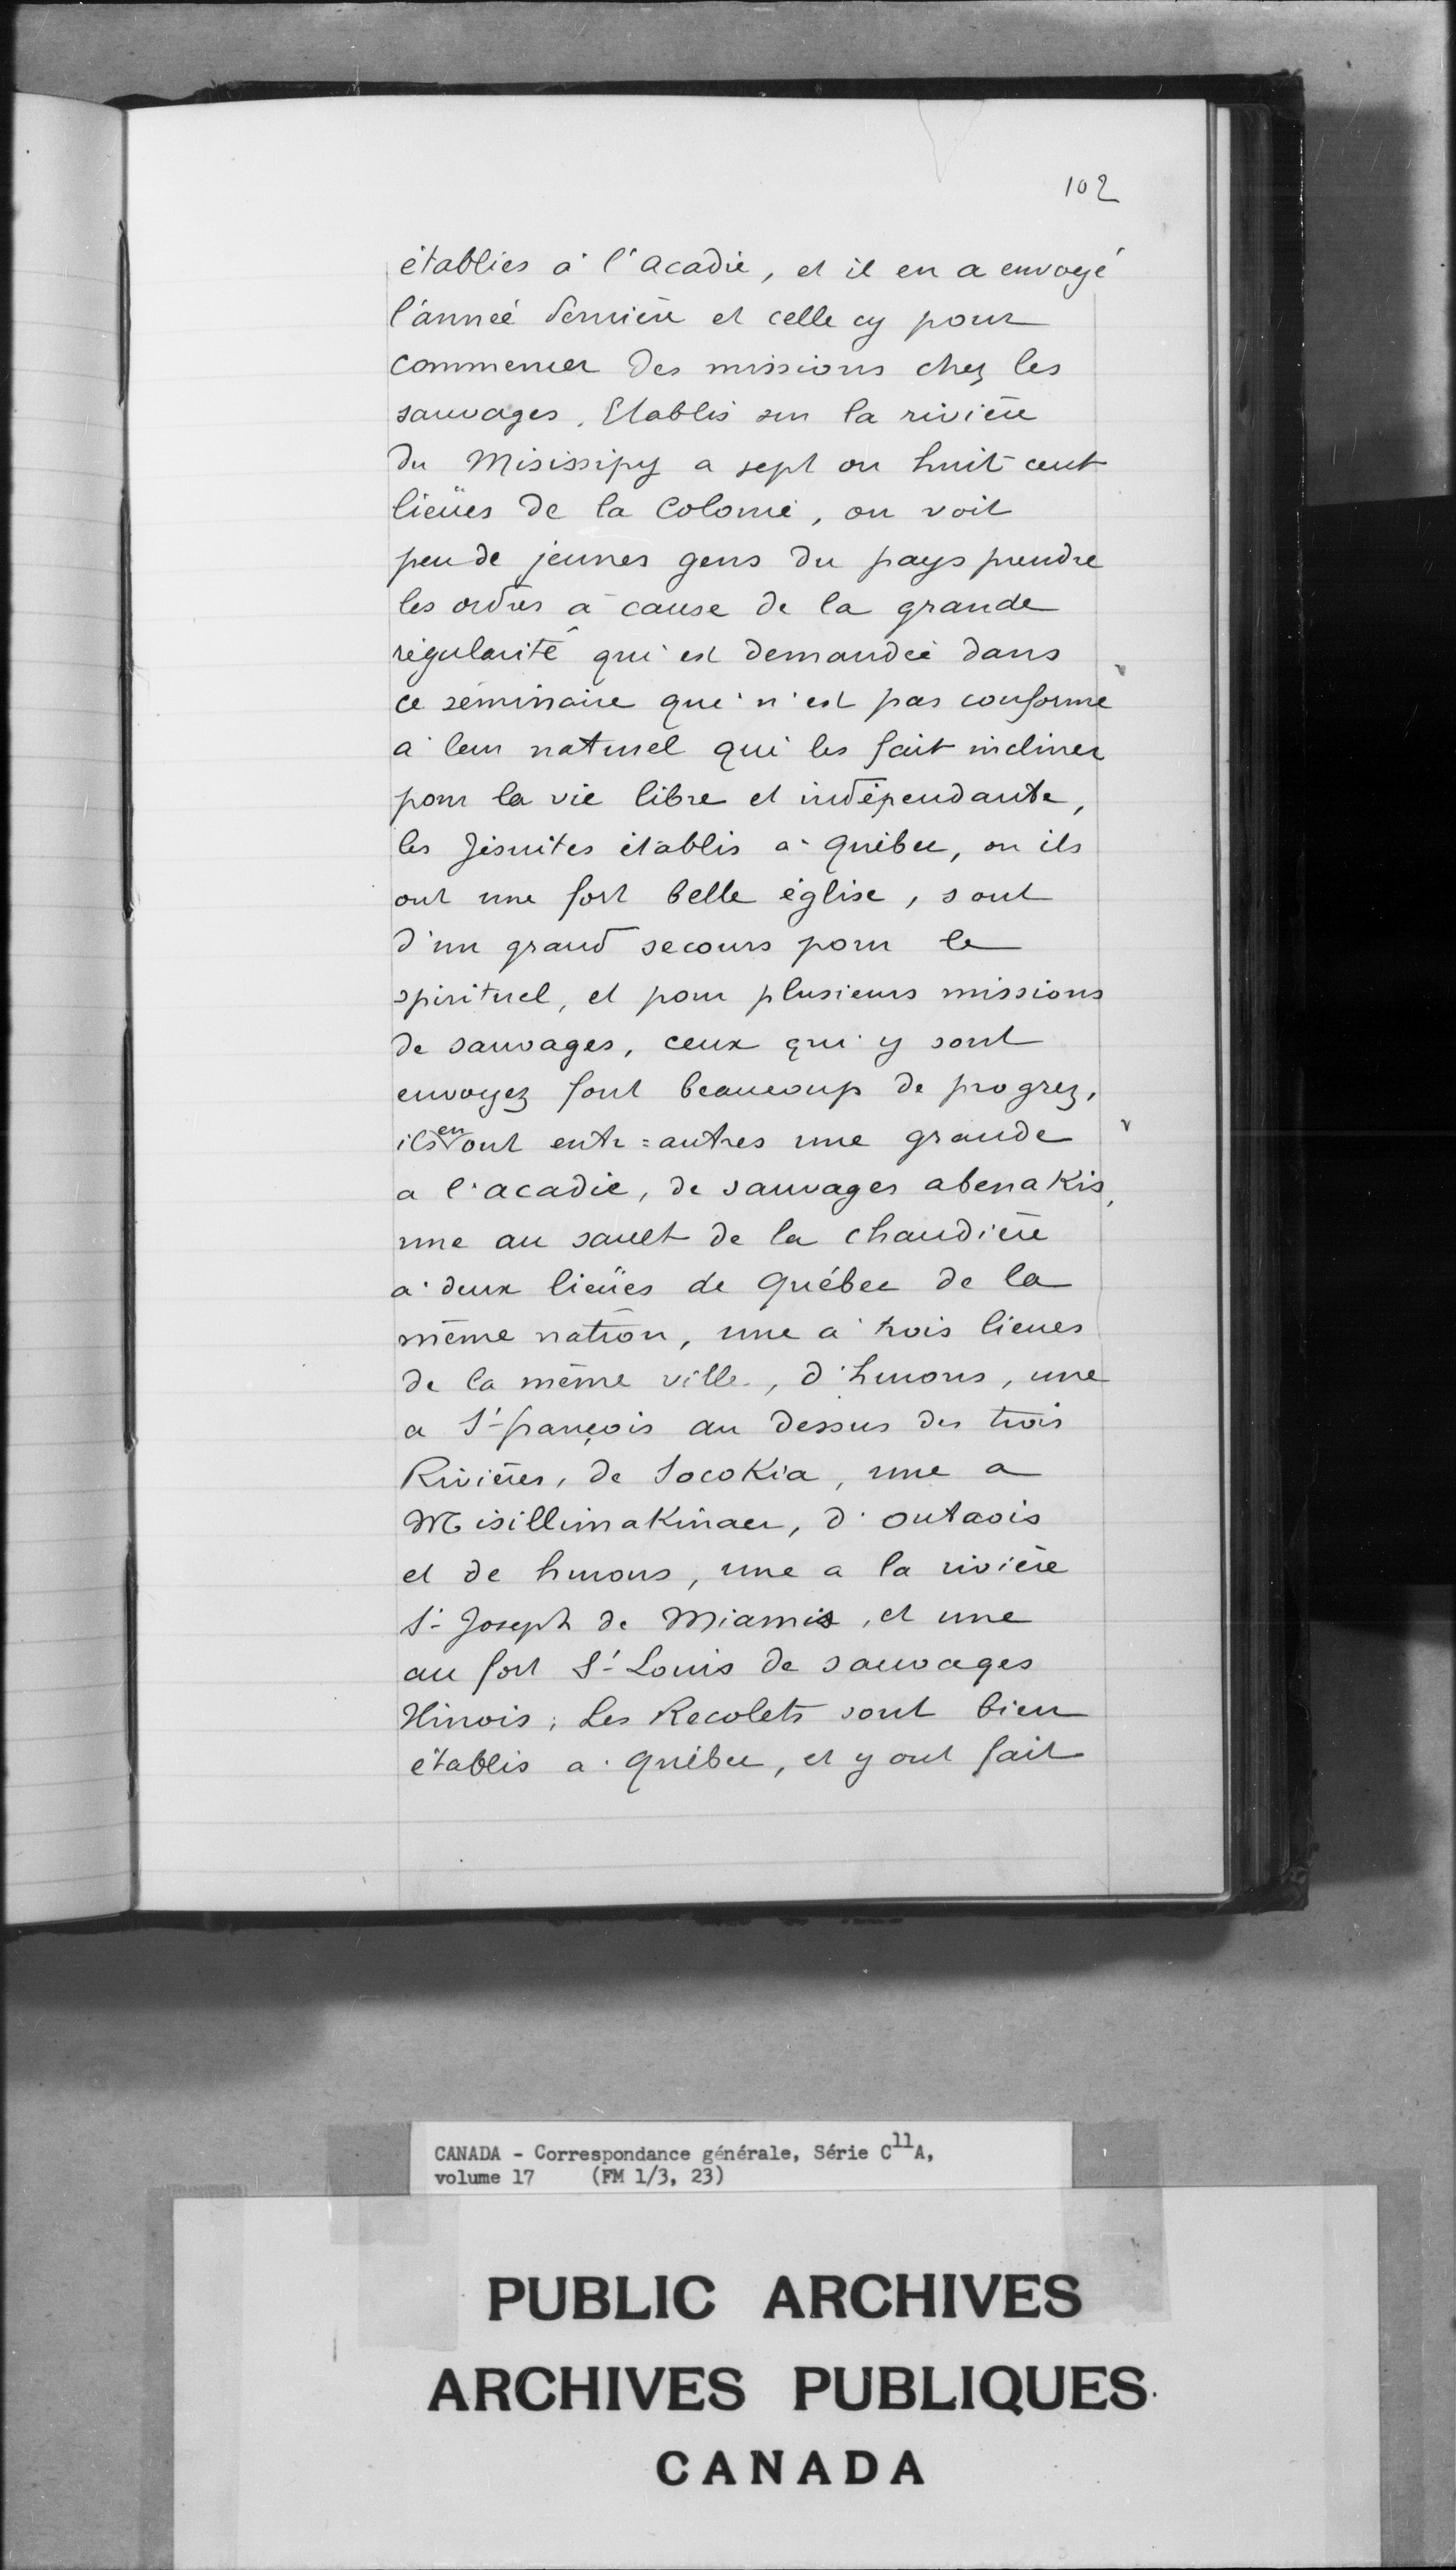 102
établies à l'acadie, et il en a envoyé
l'année dernière et celle cy pour
commencer des missions chez les
sauvages. Etablis sur la rivière
du Misissipy a sept ou huit cent
lieües de la Colonie, on voit
peu de jeunes gens du pays prendre
les ordres à cause de la grande
régularité qui est demandée dans
ce séminaire qui n'est pas conforme
à leur naturel qui les fait incliner
pour la vie libre et indépendante,
les Jésuites établis à Québec, ou ils
ont une fort belle église, sont
d'un grand secours pour le
spirituel, et pour plusieurs missions
de sauvages, ceux qui y sont
envoyez font beaucoup de progrez,
ils en ont entr=autres une grande
a l'acadie, de sauvages abenakis,
une au sault de la chaudière
à deux lieües de Québec de la
même nation, une à trois lieues
de la même ville, d'hurons, une
a St-françois au dessus des trois
Rivières, de Socokia, une a
Misillimakinac, d'outaois
et de hurons, une a la rivière
St Joseph de Miamis, et une
au fort St Louis de sauvages
Ilinois; Les Recolets sont bien
établis à Québec, et y ont fait
CANADA - Correspondance générale, Série C11A,
volume 17 (FM 1/3, 23)
PUBLIC ARCHIVES
ARCHIVES PUBLIQUES
CANADA